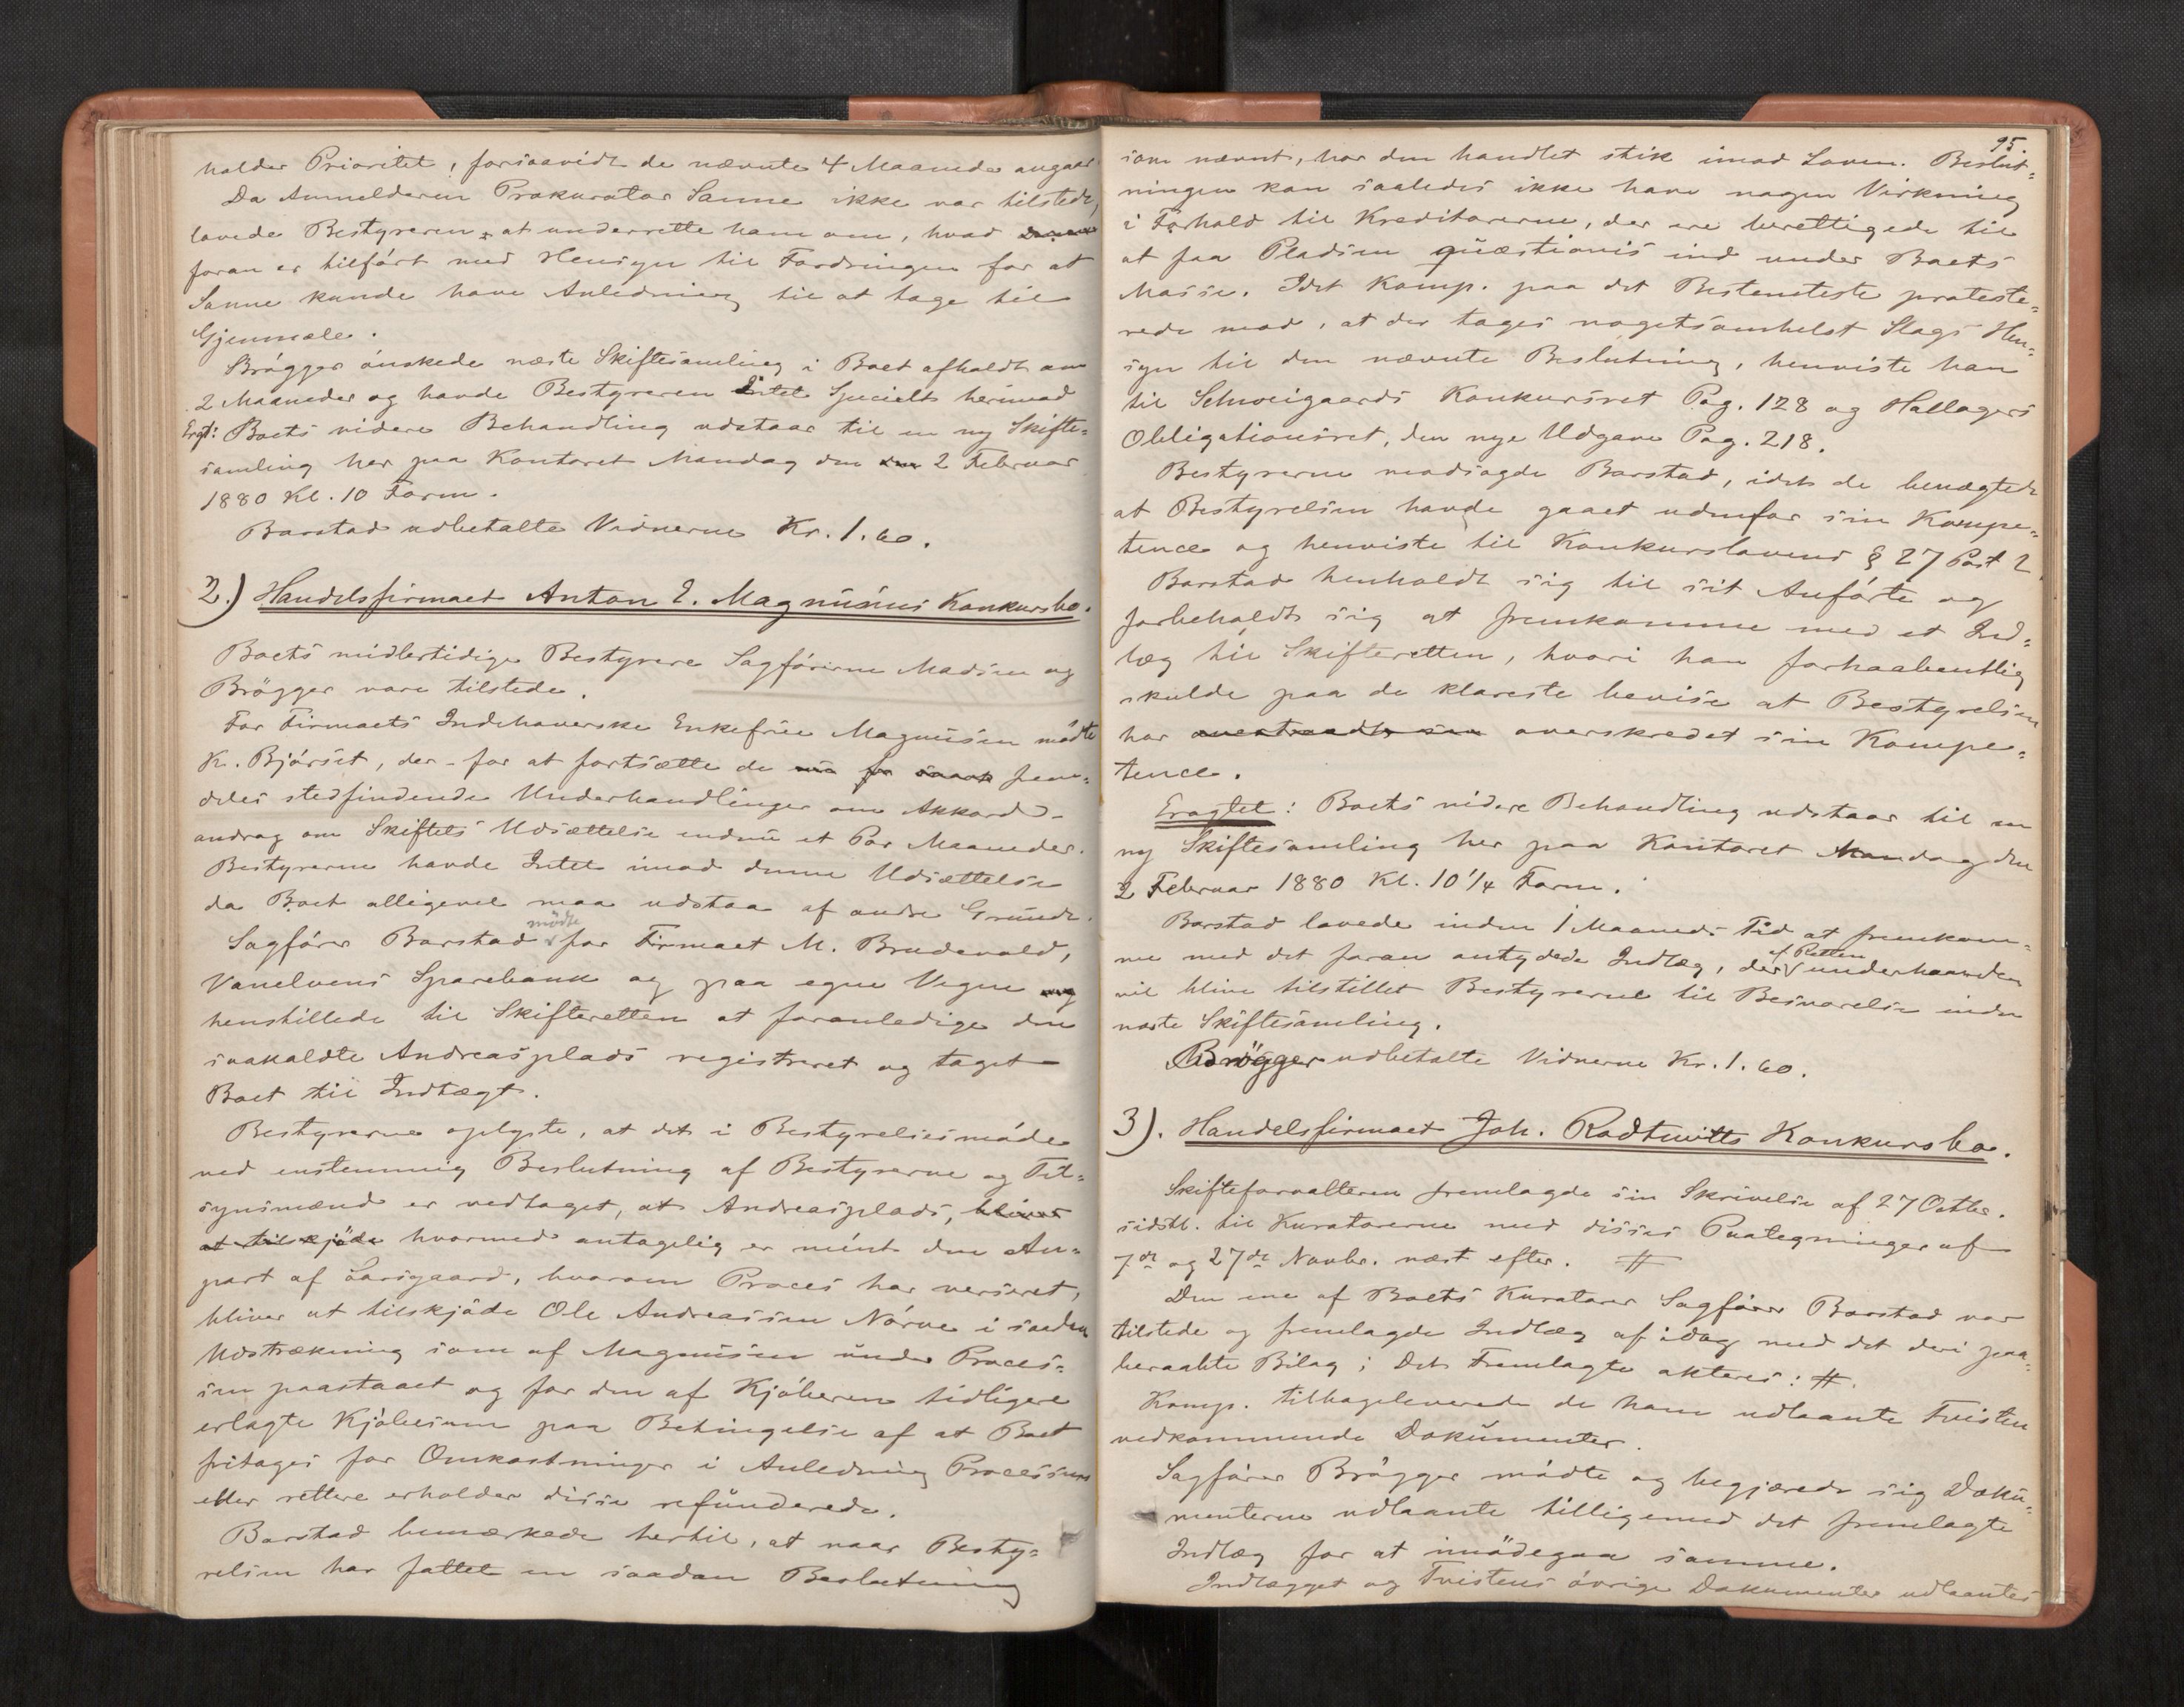 holder Prioritet, forsaavidt de nævnte 4 Maaneder angaar
Da Anmelderen Prokurator Sanne ikke var tilstede,
lovede Bestyreren at underrette ham om, hvad
foran er tilført med Hensyn til Fordringen for at
Sanne kunde have Anledning til at tage til
Gjenmæle.
Brøgger ønskede næste Skiftesamling i Boet afholdt om
2 Maaneder og havde Bestyreren Intet Specielt herimod
Eragt: Boets videre Behandling udstaar til en ny Skifte=
samling her paa Kontoret Mandag den 2 Februar
1880 Kl. 10 Form.
Barstad udbetalte Vidnerne Kr. 1.60.
2.) Handelsfirmaet Anton E. Magnusens Konkursbo.
Boets midlertidige Bestyrere Sagførerne Madsen og
Brøgger vare tilstede.
For Firmaets Indehaverske Enkefrue Magnusen mødte
K. Bjørset, der - for at fortsætte de frem=
deles stedfindende Underhandlinger om Akkord -
androg om Skiftets Udsættelse endnu et Par Maaneder.
Bestyrerne havde Intet imod denne Udsættelse
da Boet alligevel maa udstaa af andre Grunde.
Sagfører Barstad mødte for Firmaet M. Brudevold,
Vanelvens Sparebank og paa egne Vegne og
henstillede til Skifteretten at foranledige den
saakaldte Andreasplads registreret og taget
Boet til Indtægt.
Bestyrerne oplyste, at det i Bestyrelsesmøde
ved enstemmig Beslutning af Bestyrerne og Til=
synsmænd er vedtaget, at Andreasplads, bliver
at tilskjøde hvormed antagelig er ment den An=
part af Larsgaard, hvorom Proces har verseret,
bliver at tilskjøde Ole Andreassen Nørve i saadan
Udstrækning som af Magnusen under Proces=
sen paastaaet og for den af Kjøberen tidligere
erlagte Kjøbesum paa Betingelse af at Boet
fritages for Omkostninger i Anledning Processen
eller rettere erholder disse refunderede.
Barstad bemærkede hertil, at naar Besty=
relsen har fattet en saadan Beslutning
95.
som nævnt, har den handlet stik imod Loven. Beslut=
ningen kan saaledes ikke have nogen Virkning
i Forhold til Kreditorerne, der ere berettigede til
at faa Pladsen quæstionis ind under Boets
Masse. Idet Komp. paa det Bestemteste proteste=
rede mod, at der tages nogetsomhelst Slags Hen=
syn til den nævnte Beslutning, henviste han
til Schweigaards Konkursret Pag. 128 og Hallagers
Obligationsret, den nye Udgave Pag. 218.
Bestyrerne modsagde Barstad, idet de benægtede
at Bestyrelsen havde gaaet udenfor sin Kompe=
tence og henviste til Konkurslovens § 27 Post 2
Barstad henholdt sig til sit Anførte og
forbeholdt sig at fremkomme med et Ind=
læg til Skifteretten, hvori han forhaabentlig
skulde paa de klareste bevise at Bestyrelsen
har overtraadt sin overskredet sin Kompe=
tence.
Eragtet: Boets videre Behandling udstaar til en
ny Skiftesamling her paa Kontoret Mandag den
2 Februar 1880 Kl. 10 1/4 Form.
Barstad lovede inden 1 Maaneds Tid at fremkom=
me med det foran antydede Indlæg, der af Retten underhaanden
vil blive tilstillet Bestyrerne til Besvarelse inden
næste Skiftesamling.
Brøgger udbetalte Vidnerne Kr. 1.60.
3). Handelsfirmaet Joh. Rodtwitts Konkursbo.
Skifteforvalteren fremlagde sin Skrivelse af 27 Octbr.
sidstl. til Kuratorerne med disses Paategninger af
7de og 27de Novbr. næst efter. #
Den ene af Boets Kuratorer Sagfører Barstad var
tilstede og fremlagde Indlæg af idag med det deri paa=
beraabte Bilag; Det Fremlagte akteres: #.
Komp. tilbageleverede de ham udlaante Tvisten
vedkommende Dokumenter.
Sagfører Brøgger mødte og begjærede sig Doku=
menterne udlaante tilligemed det fremlagte
Indlæg for at imødegaa samme.
Indlægget og Tvistens øvrige Dokumenter udlaantes